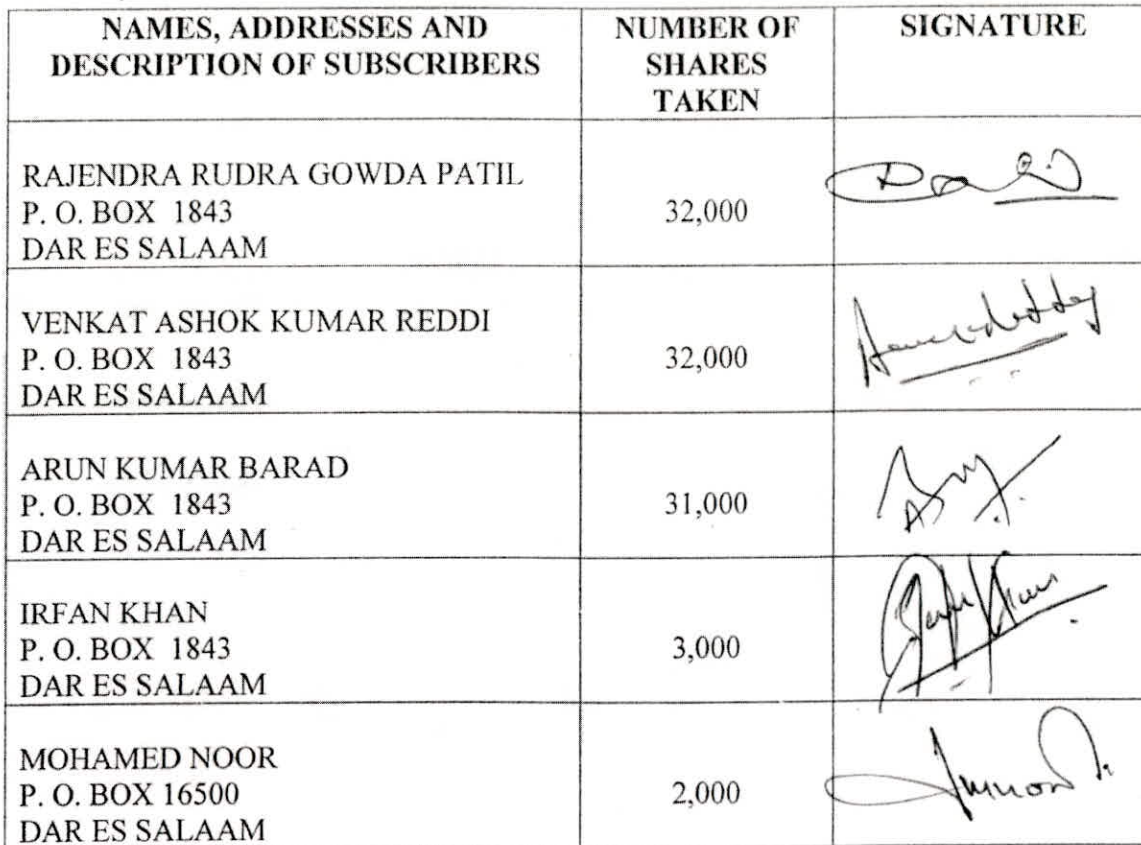 NAMES, ADDRESSES AND
DESCRIPTION OF SUBSCRIBERS
NUMBER OF
SHARES
TAKEN
SIGNATURE
RAJENDRA RUDRA GOWDA PATIL
P. O. BOX 1843
DAR ES SALAAM
32,000
VENKAT ASHOK KUMAR REDDI
P. O. BOX 1843
DAR ES SALAAM
32,000
ARUN KUMAR BARAD
P. O. BOX 1843
DAR ES SALAAM
31,000
IRFAN KHAN
P. O. BOX 1843
DAR ES SALAAM
3,000
MOHAMED NOOR
P. O. BOX 16500
DAR ES SALAAM
2,000